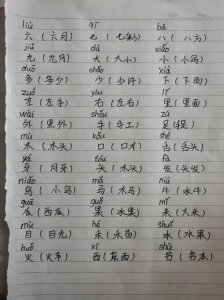 liù qī bā
六（六月）七（七彩） 八（八为）
jiǔ dà xiǎo
九（九月） 大（大小） 小（小鸟）
duō shǎo xià
多（多少） 少（少许） 下（下面）
zuǒ yòu lǐ
左（左手） 右（右面） 里（里面）
wài shǒu zú
外（里外） 手（手工） 足（足）
mù kǒu shé
木（木头） 口（口才） 舌（舌头）
yá tóu fà
牙（月牙） 头（木头） 发（头发）
niǎo mǎ niú
鸟（小鸟） 马（木马） 牛（水牛）
guā guǒ mǐ
瓜（西瓜） 果（水果） 米（大米）
mù hé shuǐ
目（目光） 禾（禾苗） 水（水果）
huǒ xī shū
火（火车） 西（东西） 书（书本）